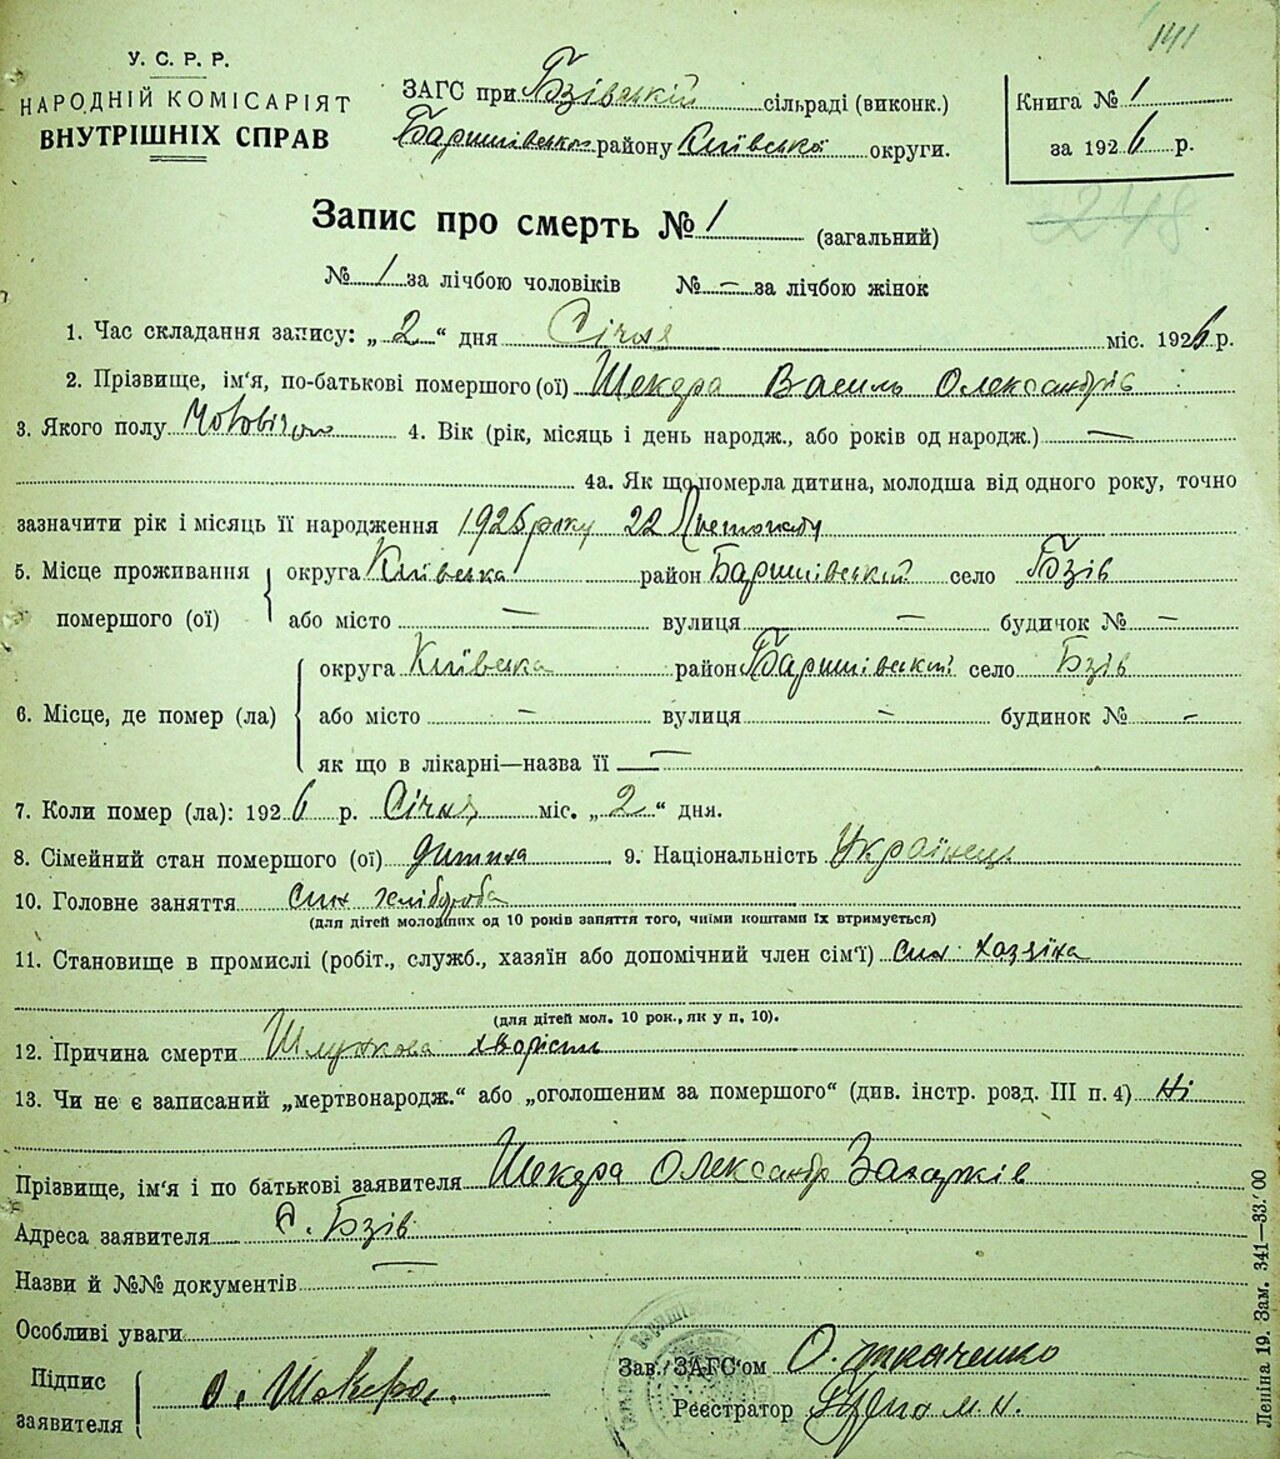 141
У. С. Р. Р.
НАРОДНІЙ КОМІСАРІЯТ
ВНУТРІШНІХ СПРАВ
ЗАГС при Бзівській сільраді (виконк.)
Баришівському району Київської округи.
Книга № 1
за 1926 р.
248
Запис про смерть № 1 (загальний)
№ 1 за лічбою чоловіків № — за лічбою жінок
1. Час складання запису: „2“ дня Січня міс. 1926 р.
2. Прізвище, ім‘я, по-батькові помершого (ої) Шекера Василь Олександрів
3. Якого полу 4. Вік (рік, місяць і день народж., або років од народж.) —
4а. Як що померла дитина, молодша від одного року, точно
зазначити рік і місяць її народження 1925 року 22 Листопаду
5. Місце проживання округа Київська район Баришівський село Бзів
помершого (ої) або місто — вулиця — будичок № —
округа Київська район Баришівський село Бзів
6. Місце, де помер (ла) або місто — вулиця — будинок № —
як що в лікарні—назва її —
7. Коли помер (ла): 1926 р. Січня міс. „2“ дня.
8. Сімейний стан помершого (ої) дитина 9. Національність Українець
10. Головне заняття син хлібороба
(для дітей молодших од 10 років заняття того, чиїми коштами їх втримується)
11. Становище в промислі (робіт., служб., хазяїн або допомічний член сім‘ї) син хазяїна
(для дітей мол. 10 рок., як у п. 10).
12. Причина смерти Шлункова хворість
13. Чи не є записаний „мертвонародж.“ або „оголошеним за помершого“ (див. інстр. розд. III п. 4) Ні
Прізвище, ім‘я і по батькові заявителя Шекера Олександр Захарків
Адреса заявителя С. Бзів
Назви й №№ документів —
Особливі уваги
Підпис
заявителя О. Шекера.
Зав. ЗАГС‘ом О. Ткаченко
Реєстратор
Леніна 19. Зам. 341—33.‘00